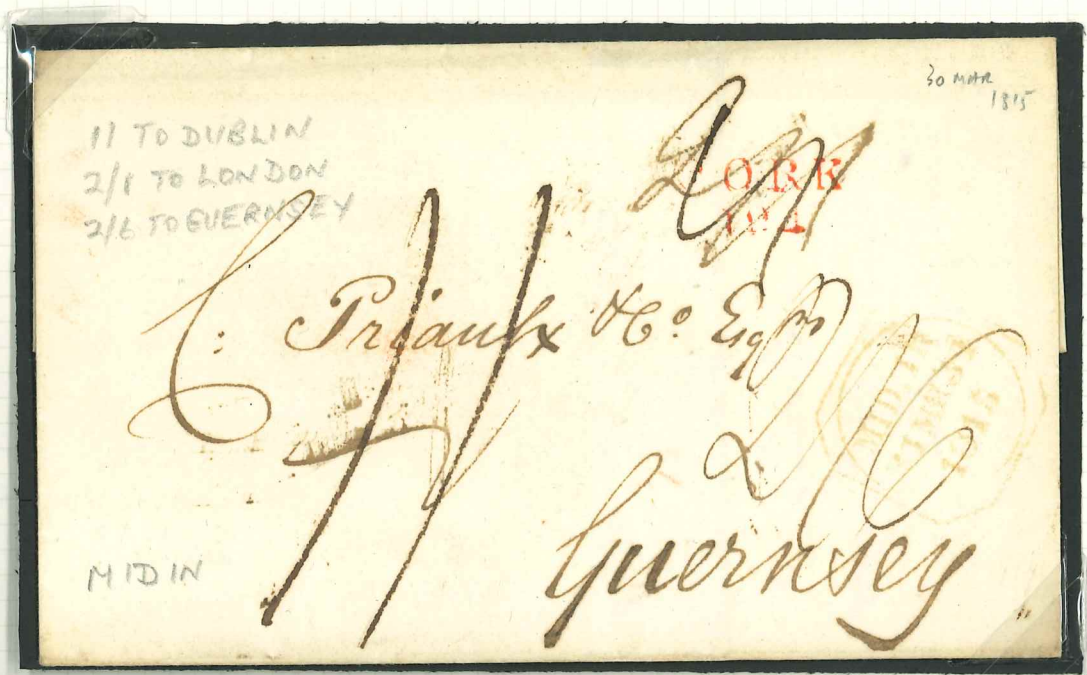 30 MAR
1815
1/ TO DUBLIN
2/1 TO LONDON
2/6 TO GUERNSEY
ORK
C: Priaulx & Co. Esqrs
2/6
1815
Guernsey
MIDIN